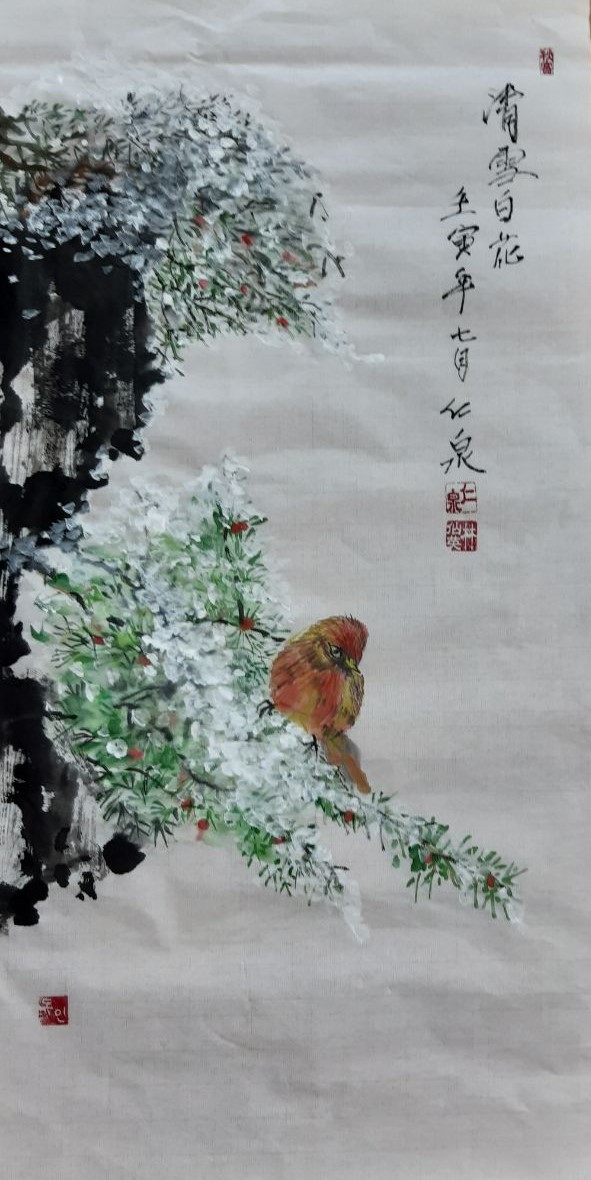 清雪白花
壬寅年七月仁泉
仁泉